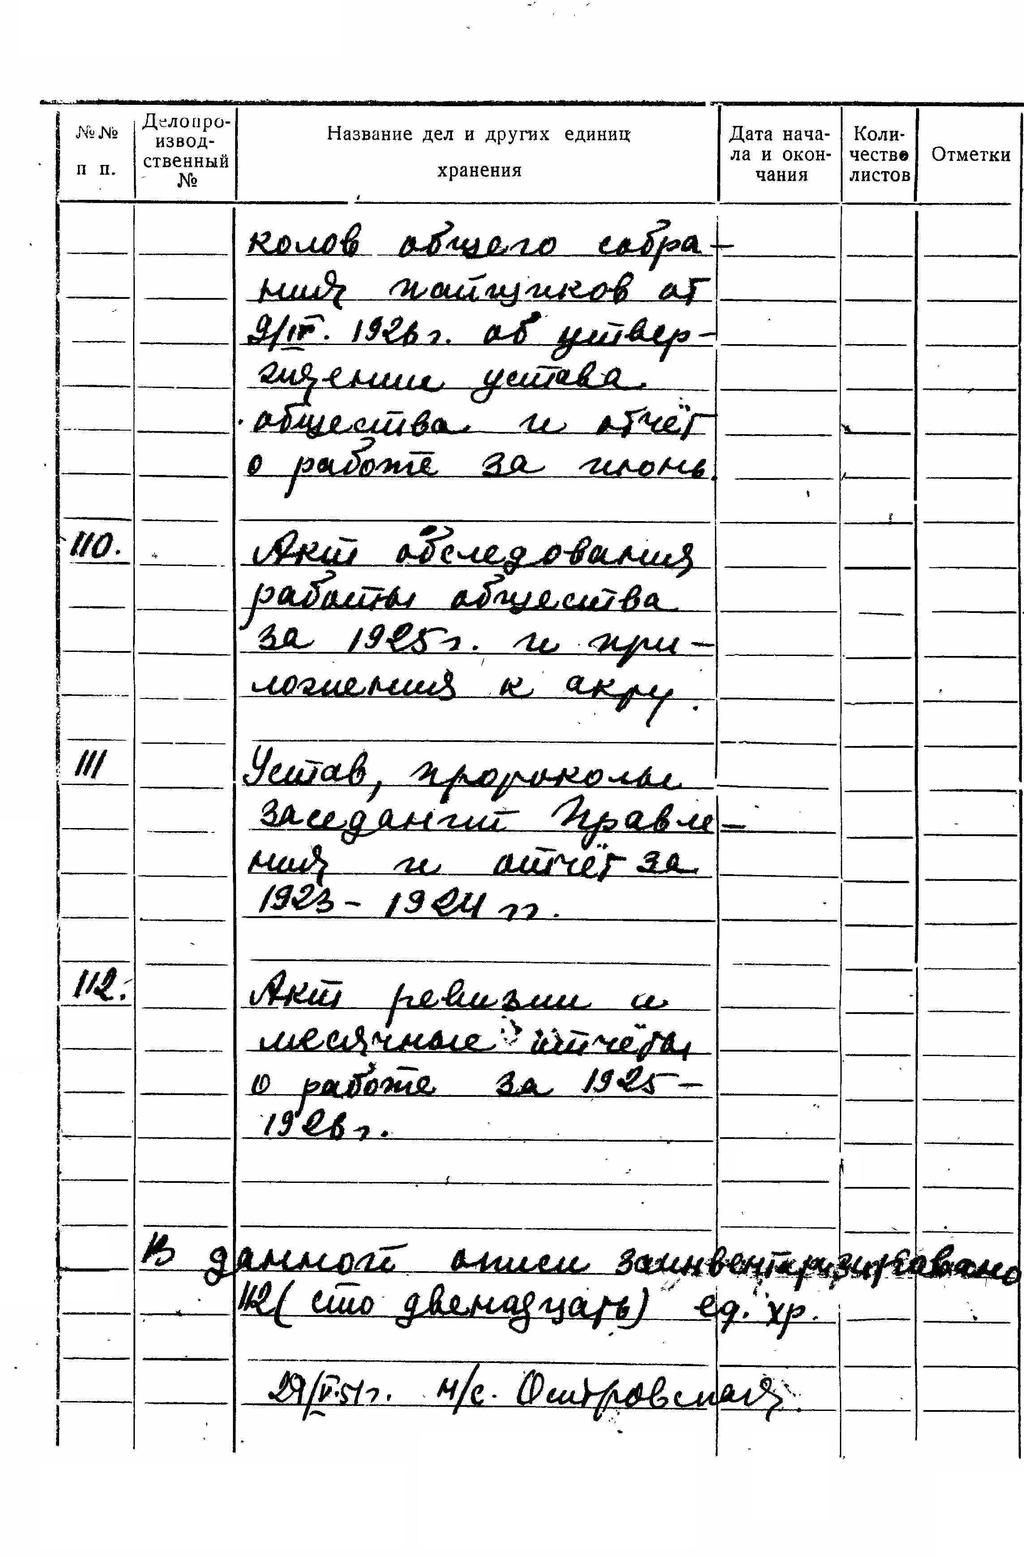 №№ п п.
Делопроизвод-
ственный
№
Название дел и других единиц
хранения
Дата нача-
ла и окон-
чания
Коли-
чество
листов
Отметки
колов общего собра-
ния пайщиков от
9/IV. 1926 г. об утвер-
ждении устава
общества и отчёт
о работе за июнь.
110. Акт обследования
работы общества
за 1925 г. и при-
ложения к акту.
111 Устав, протоколы
заседаний Правле-
ния и отчёт за
1923 - 1924 гг.
112. Акт ревизии и
месячные отчёты
о работе за 1925 -
1926 г.
В данной описи заинвентаризировано
112 (сто двенадцать) ед. хр.
29/V.51 г. н/с. Островская.